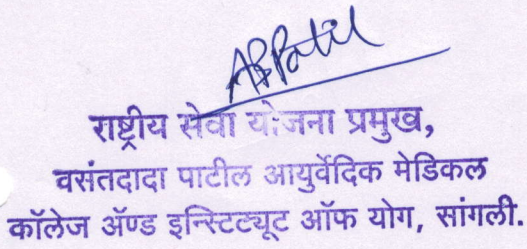 ABPatil
राष्ट्रीय सेवा योजना प्रमुख,
वसंतदादा पाटील आयुर्वेदिक मेडिकल
कॉलेज ॲण्ड इन्स्टिट्यूट ऑफ योग, सांगली.